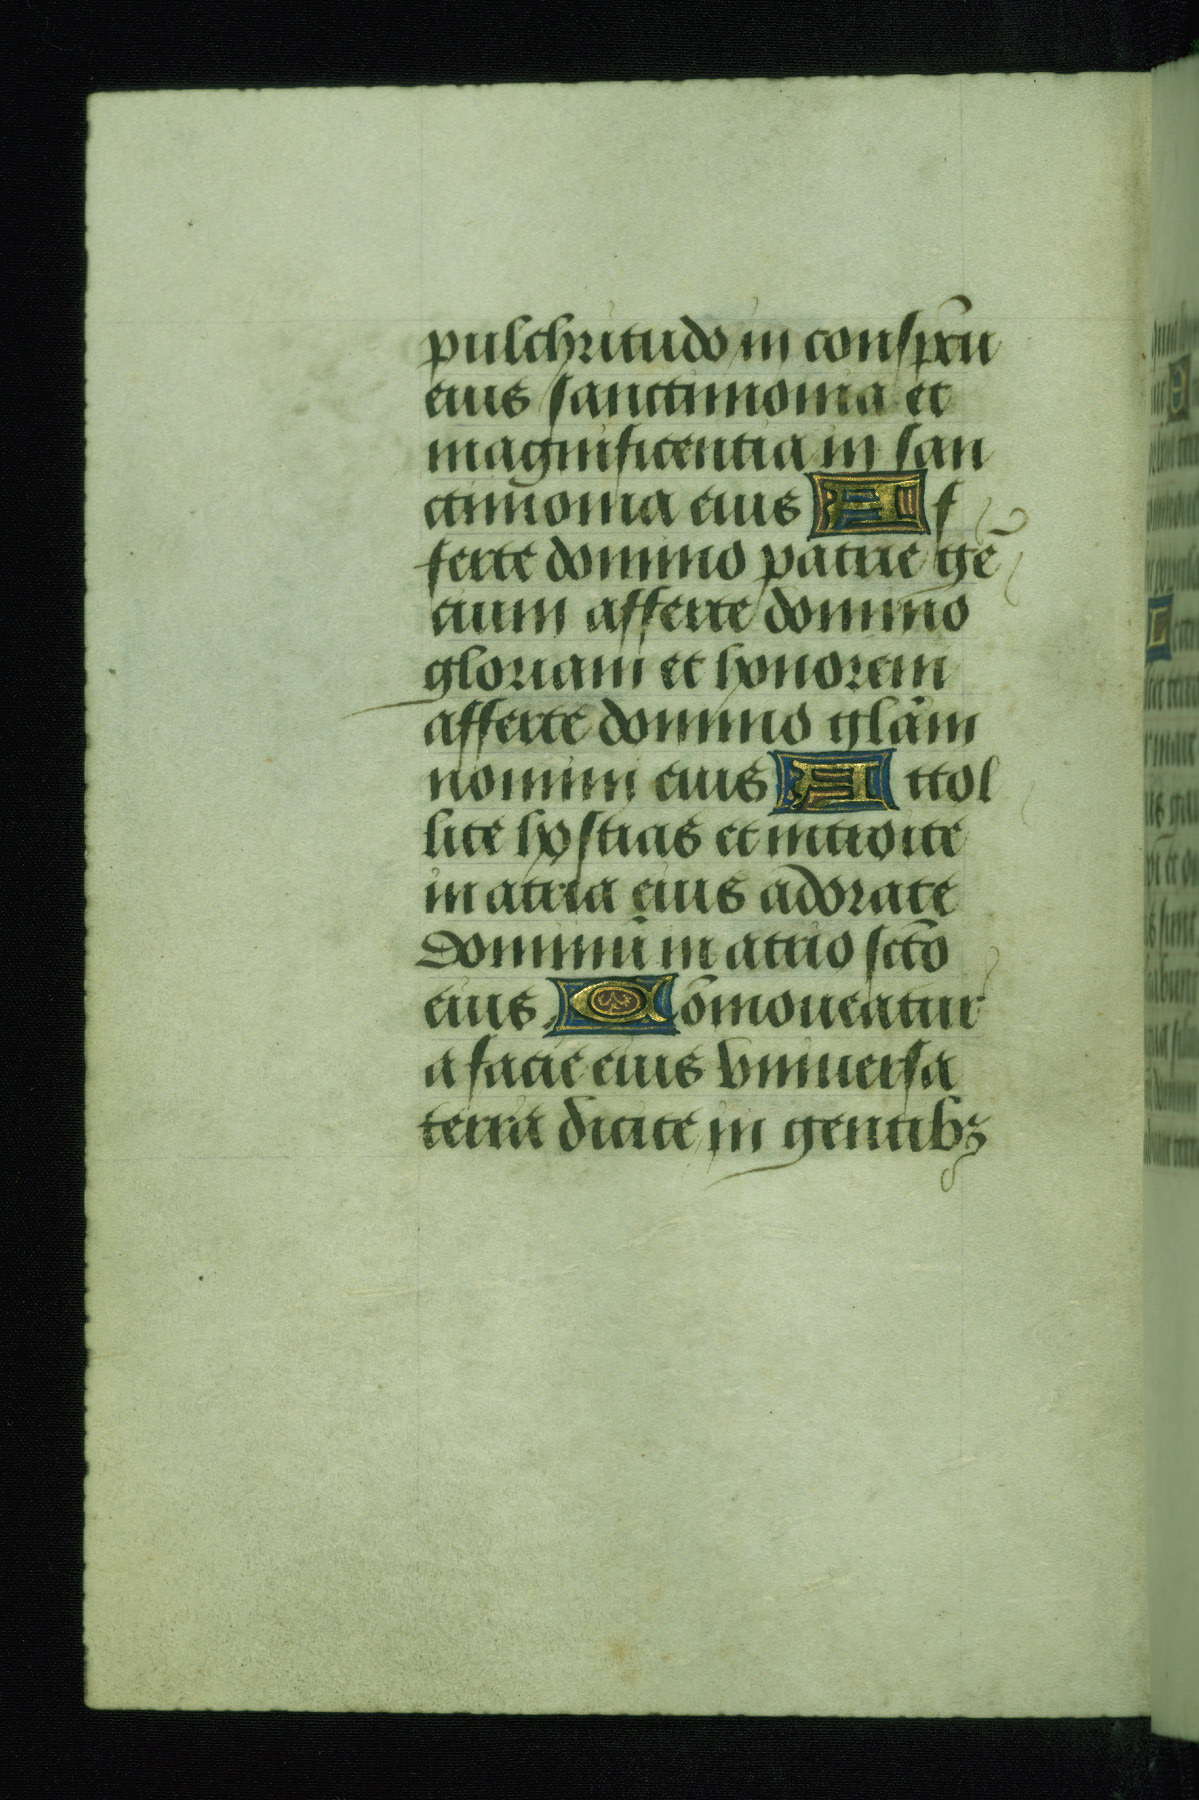 pulchritudo in conspc̄u
eius sanctimonia et
magnificentia in san
ctimonia eius Af
ferte domino patrie gē
cium afferte domino
gloriam et honorem
afferte domino glām
nomini eius Attol
lite hostias et introite
in atria eius adorate
Dominū in atrio sc̄to
eius Cōmoueatur
a facie eius vniuersa
terra dicite in gentibꝫ